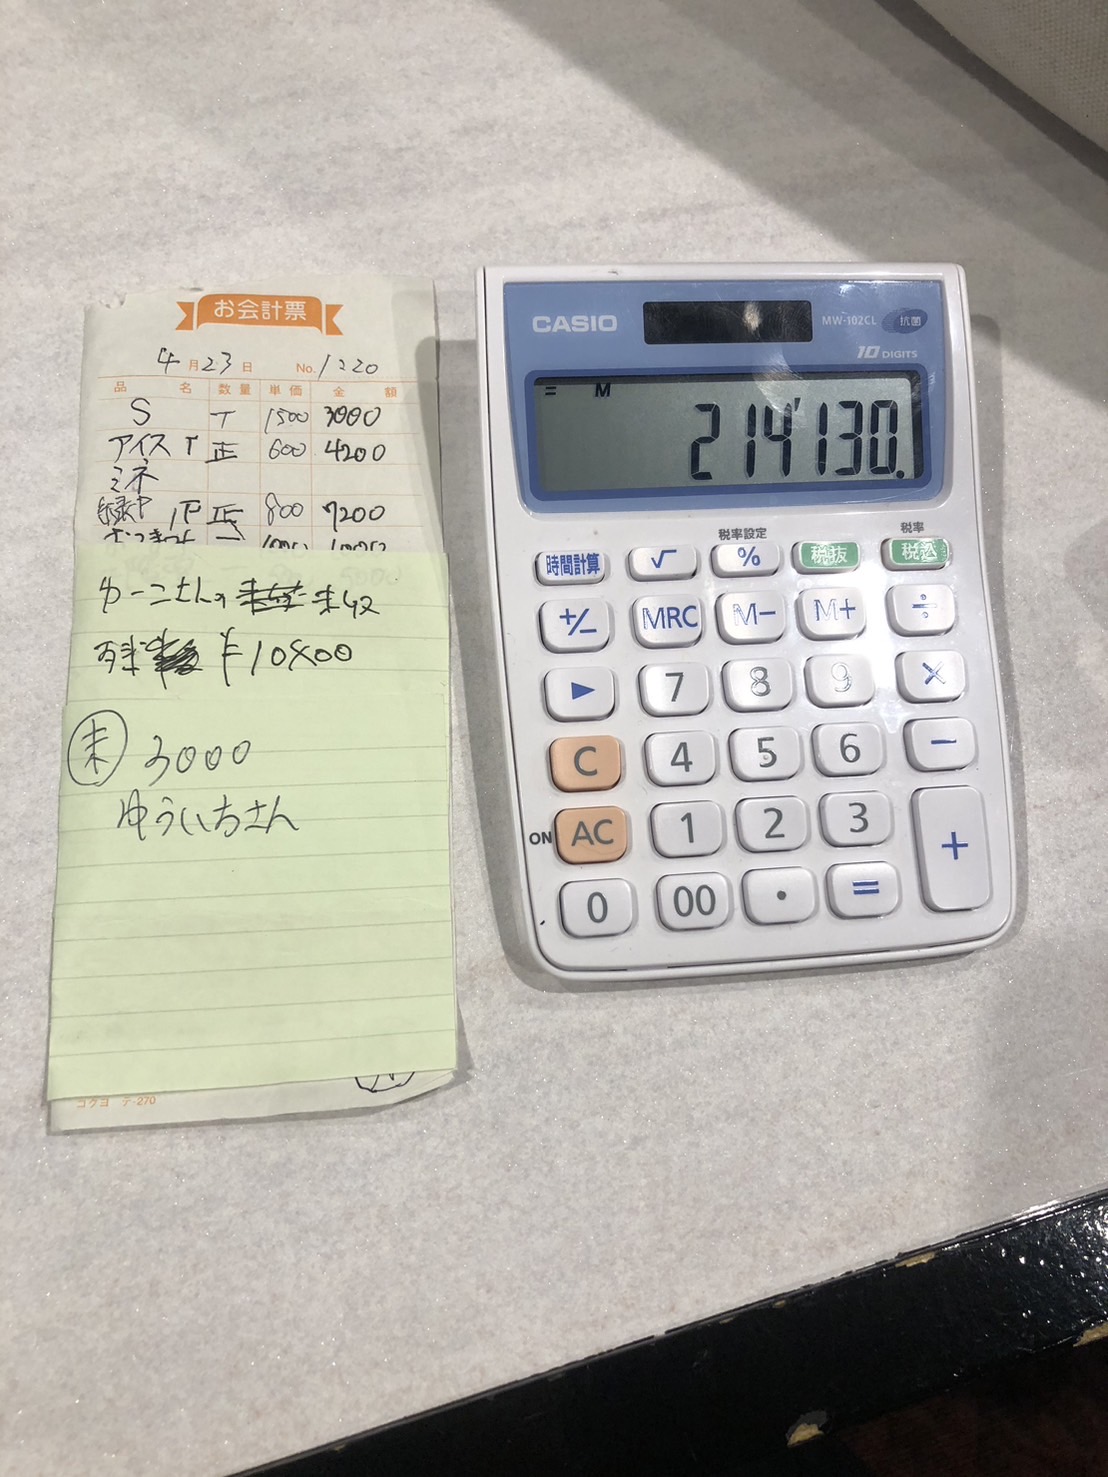 お会計票
4月23日 No. 1220
品名 数量 単価 金額
S T 1500 3000
アイス T 正 600 4200
ミネ
緑ヤ 正 800 7200
ゆーこさんの 未収
¥10800
未 3000
ゆういちさん
コクヨ テ-270
CASIO
MW-102CL 抗菌
10 DIGITS
= M
214'130.
税率設定 税率
時間計算 √ % 税抜 税込
+/− MRC M− M+ ÷
▶ 7 8 9 ×
C 4 5 6 −
ON AC 1 2 3 +
0 00 · =